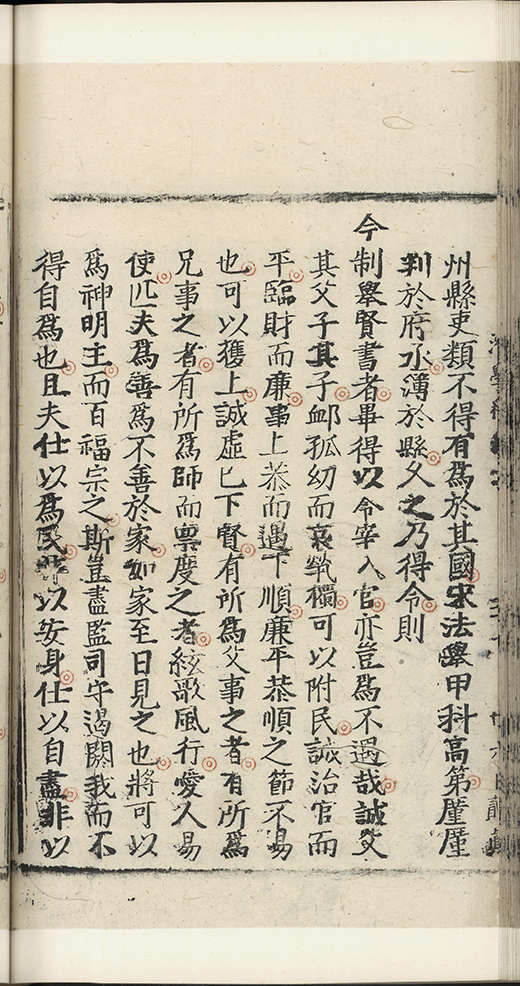 州縣吏類不得有爲於其國宋法舉甲科高第廑廑
判於府丞簿於縣久之乃得令則
今制舉賢書者畢得以令宰入官亦豈爲不遇哉誠父
其父子其子卹孤幼而哀煢獨可以附民誠治官而
平臨財而廉事上恭而遇下順廉平恭順之節不易
也可以獲上誠虛已下賢有所爲父事之者有所爲
兄事之者有所爲師而禀度之者絃歌風行愛人易
使匹夫爲善爲不善於家如家至日見之也將可以
爲神明主而百福宗之斯豈盡監司守遏閼我而不
得自爲也且夫仕以爲民非以安身仕以自盡非以